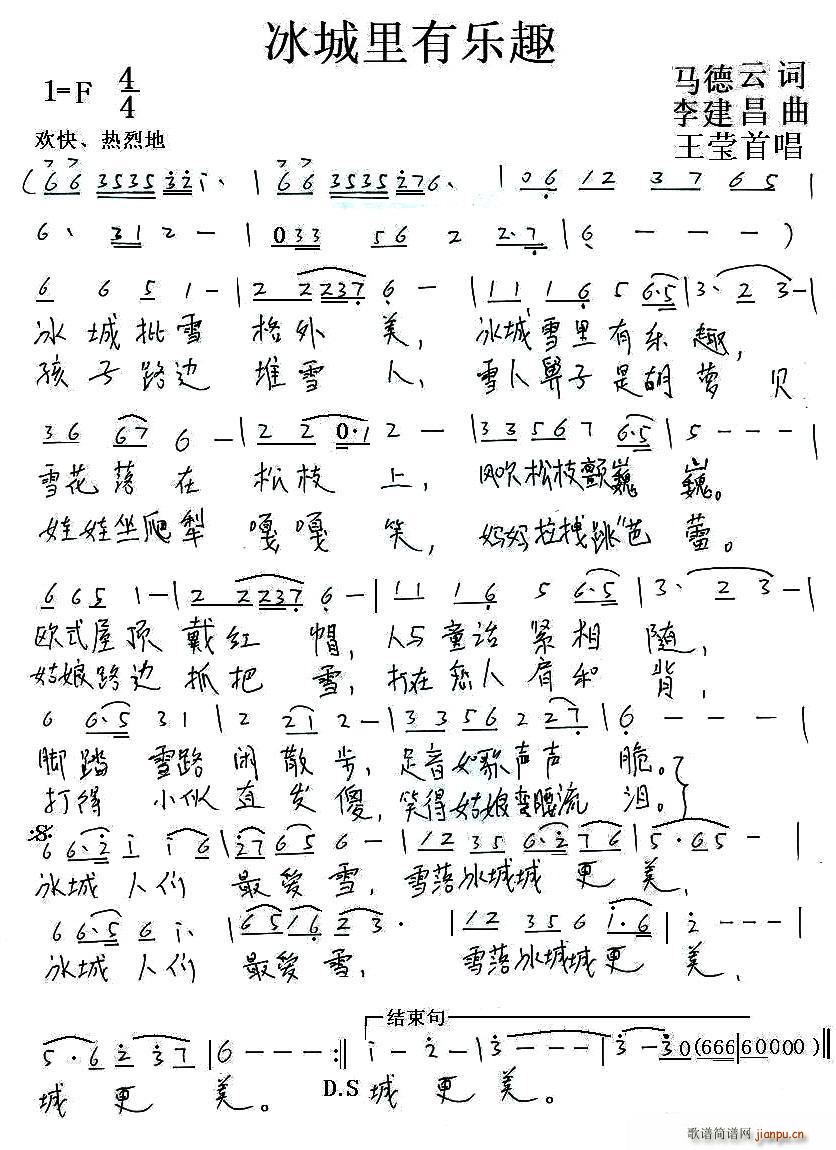 冰城里有乐趣
1=F 4/4
马德云 词
李建昌 曲
王莹首唱
欢快、热烈地
( 6 6 3535 32 i、 | 6 6 3535 276、 | 06 12 37 65 |
6、 31 2 - | 033 56 2 2·7 | 6 - - - )
6 6 5 1 - | 2 2237 6 - | 11 16 5 6·5 | 3、 2 3 - |
冰城批雪格外美，冰城雪里有乐趣，
孩子路边堆雪人，雪人鼻子是胡萝贝
36 67 6 - | 2 2 0·1 2 - | 33567 6·5 | 5 - - - |
雪花落在松枝上，风吹松枝颤巍巍。
娃娃坐爬犁嘎嘎笑，妈妈拉拽跳"芭蕾。
6 65 1 - | 2 2237 6 - | 11 16 5 6·5 | 3、 2 3 - |
欧式屋顶戴红帽，人与童话紧相随，
姑娘路边抓把雪，打在恋人肩和背，
6 6·5 31 | 2 2i 2 - | 33 56 2 27 | 6 - - - |
脚踏雪路闲散步，足音如歌声声脆。
打得小伙直发傻，笑得姑娘弯腰流泪。
6 6·2 i i6 | 27 65 6 - | 12 35 6·2 76 | 5·65 - |
冰城人们最爱雪，雪落冰城城更美，
6 6·5 6 i、 | 65 16 23· | 12 356 i·6 | 2 - - - |
冰城人们最爱雪，雪落冰城城更美，
结束句
5·6 2 37 | 6 - - - :‖ i - 2 - | 3 - - - | 3 - 30 (666 | 60000) ‖
城更美。 D.S 城更美。
歌谱简谱网
jianpu.cn